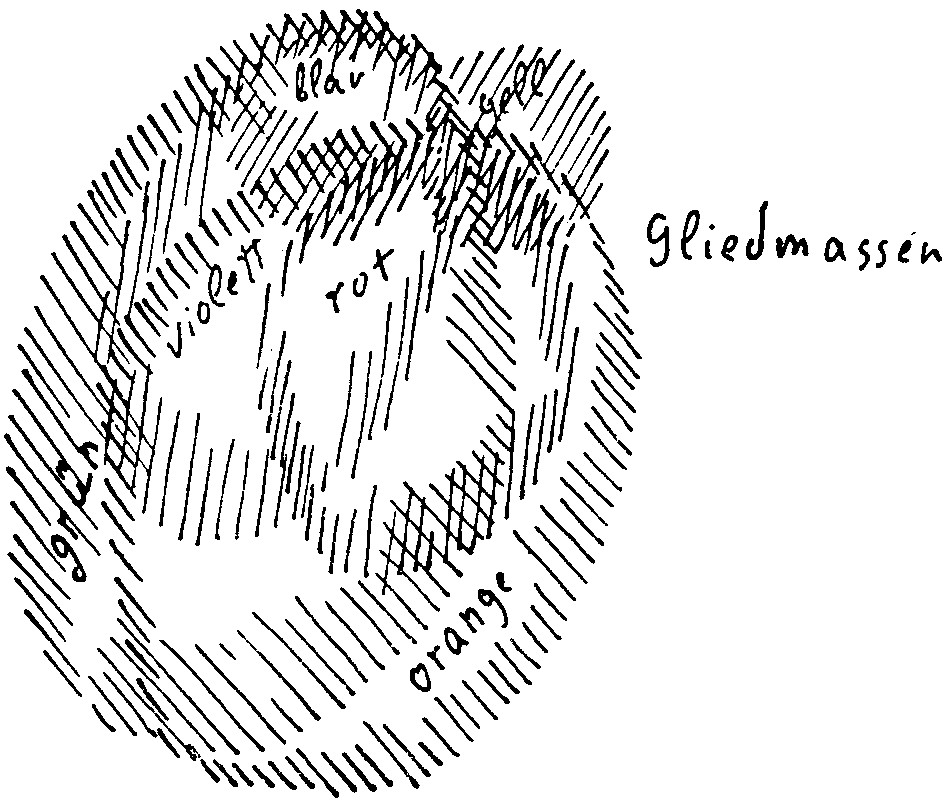 blau
gelb
Gliedmassen
violett
rot
grün
orange